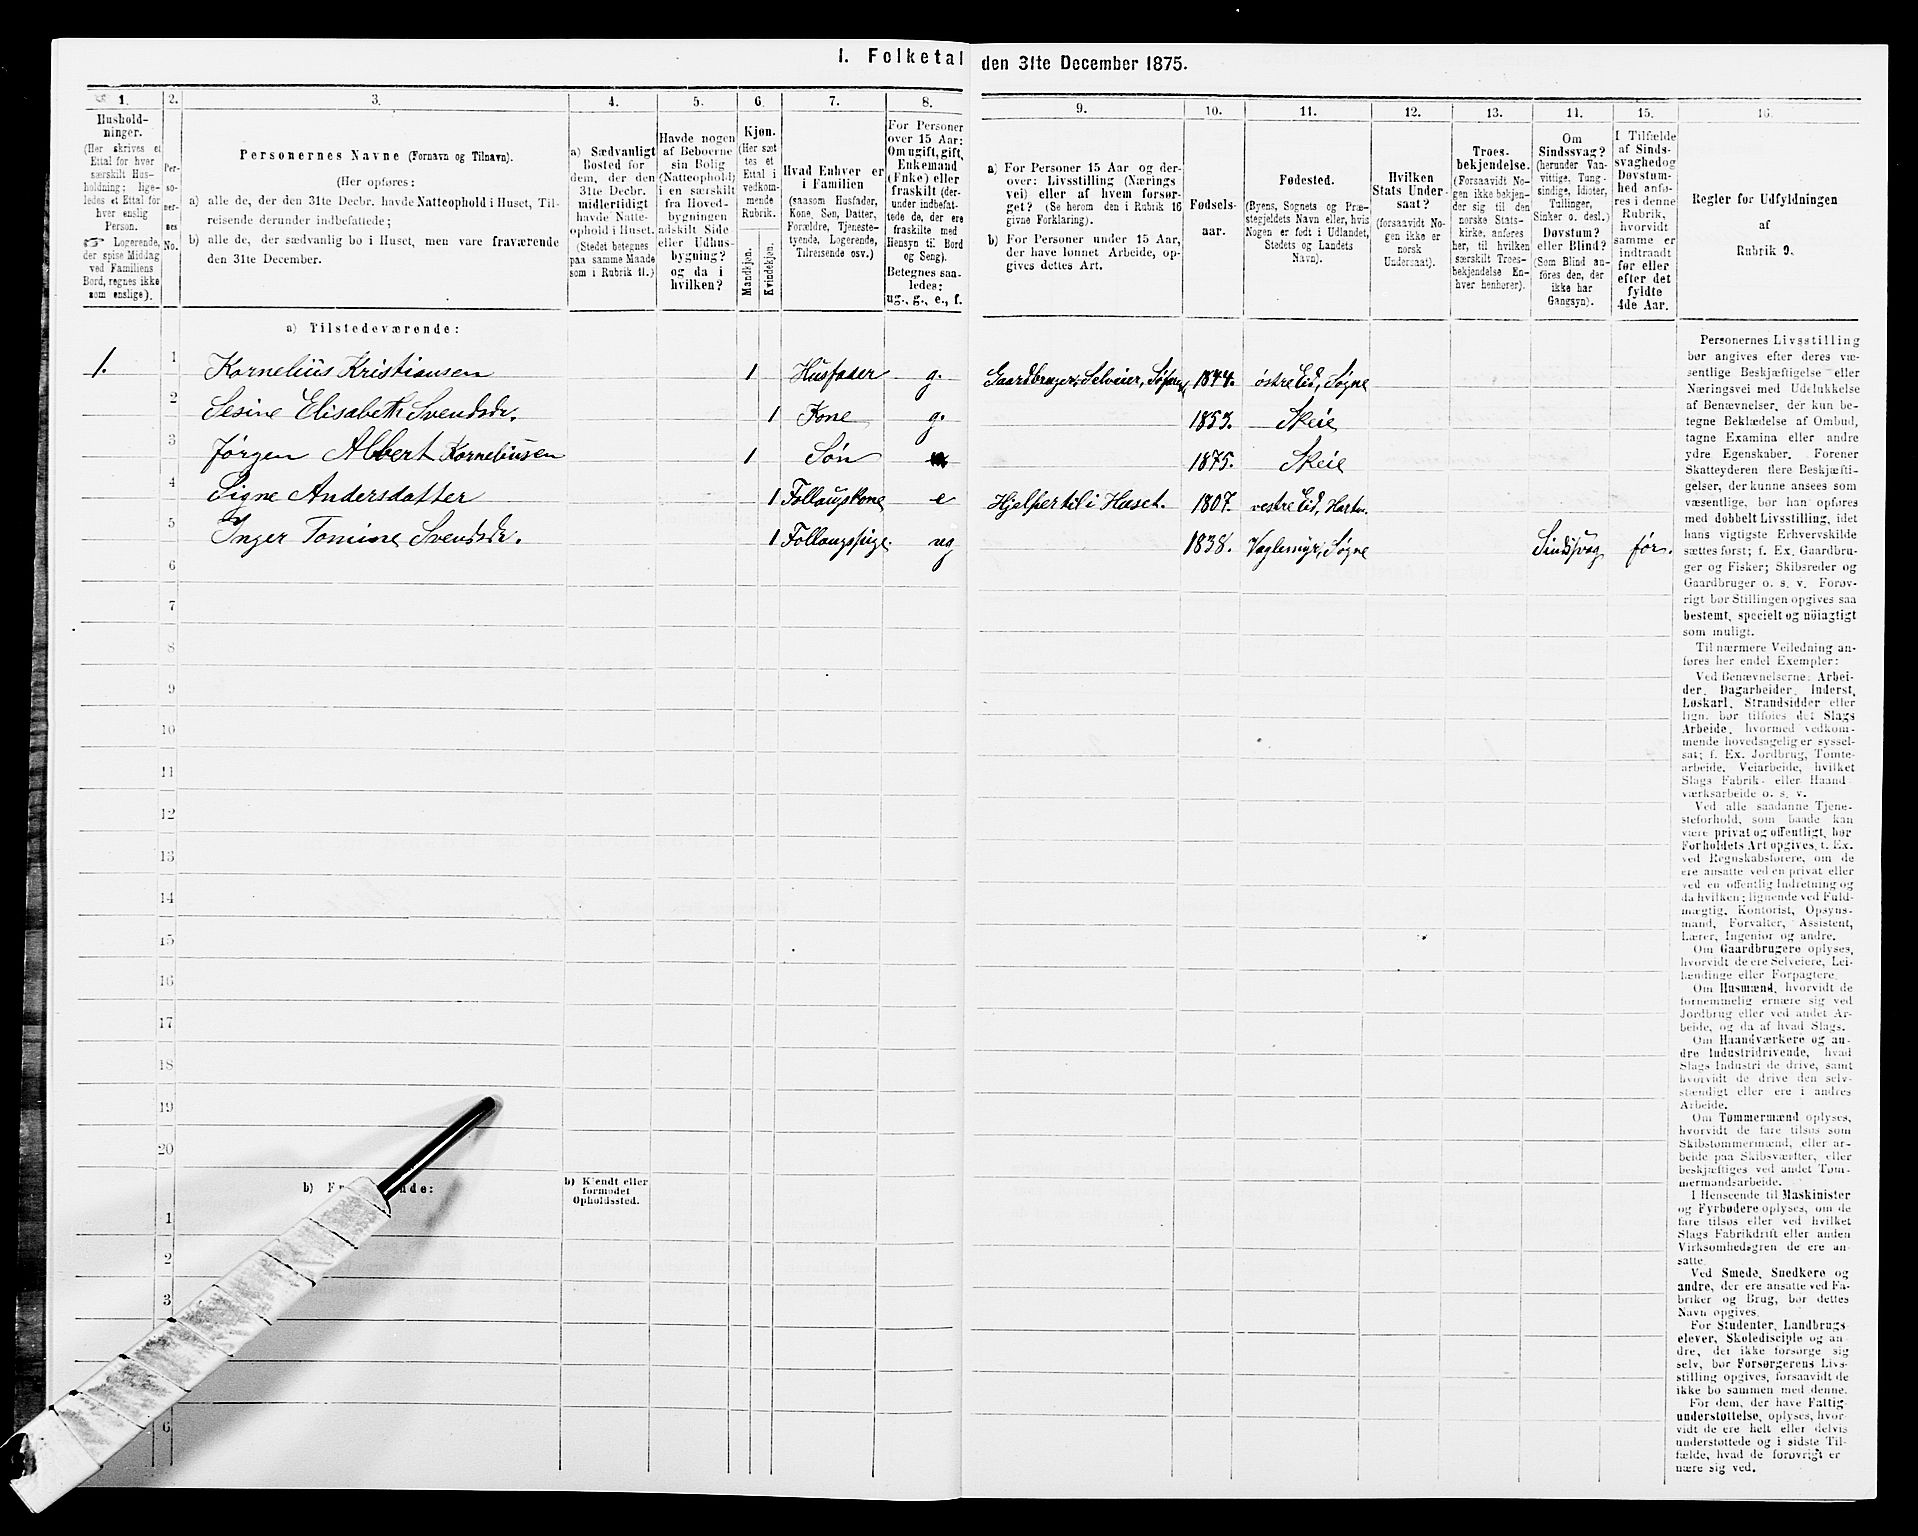 I. Folketal den 31te December 1875.
1. 2. 3. 4. 5. 6. 7. 8. 9. 10. 11. 12. 13. 14. 15. 16.
Hushold-
ninger.
(Her skrives et
Ettal for hver
særskilt Hus-
holdning; lige-
ledes et Ettal for
hver enslig
Person.
☞ Logerende,
der spise Middag
ved Familiens
Bord, regnes ikke
som enslige).
Per-
so-
ner-
nes
No.
Personernes Navne (Fornavn og Tilnavn).
(Her opføres:
a) alle de, der den 31te Decbr. havde Natteophold i Huset, Til-
reisende derunder indbefattede;
b) alle de, der sædvanlig bo i Huset, men vare fraværende
den 31te December.
a) Sædvanligt
Bosted for
dem, der den
31te Decbr.
midlertidigt
havde Natte-
ophold i Huset.
(Stedet betegnes
paa samme Maade
som i Rubrik 11.)
Havde nogen
af Beboerne
sin Bolig
(Natteophold)
i en særskilt
fra Hoved-
bygningen
adskilt Side-
eller Udhus-
bygning?
og da i
hvilken?
Kjøn.
(Her sæt
tes et
Ettal i
vedkom-
mende
Rubrik.
Mandkjøn.
Kvindekjøn.
Hvad Enhver er
i Familien
(saasom Husfader,
Kone, Søn, Datter,
Forældre, Tjeneste-
tyende, Logerende,
Tilreisende osv.)
For Personer
over 15 Aar:
Om ugift, gift,
Enkemand
(Enke) eller
fraskilt (der-
under indbefat-
tede de, der ere
fraskilte med
Hensyn til Bord
og Seng).
Betegnes saa-
ledes:
ug., g., e., f.
a) For Personer 15 Aar og der-
over: Livsstilling (Nærings
vei) eller af hvem forsør-
get? (Se herom den i Rubrik 16
givne Forklaring).
b) For Personer under 15 Aar,
der have lønnet Arbeide, op-
gives dettes Art.
Fødsels-
aar.
Fødested.
(Byens, Sognets og Præ-
stegjeldets Navn eller, hvis
Nogen er født i Udlandet,
Stedets og Landets
Navn).
Hvilken
Stats Under-
saat?
(forsaavidt No-
gen ikke er
norsk
Undersaat).
Troes-
bekjendelse.
(Forsaavidt No-
gen ikke bekjen-
der sig til den
norske Stats-
kirke, anføres
her, til hvilken
særskilt Troes-
bekjendelse En-
hver henhører).
Om
Sindssvag?
(herunder Van-
vittige, Tung-
sindige, Idioter,
Tullinger,
Sinker o. desl.)
Døvstum?
eller Blind?
(Som Blind an-
føres den, der
ikke har
Gangsyn).
I Tilfælde
af Sinds-
svaghed og
Døvstum-
hed anfø-
res i denne
Rubrik,
hvorvidt
samme er
indtraadt
før eller
efter det
fyldte
4de Aar.
Regler for Udfyldningen
af
Rubrik 9.
a) Tilstedeværende:
1. 1 Kornelius Kristiansen 1 Husfader g. Gaardbruger, Selveier, 1844. østre Eid, Søgne
2 Sesine Elisabeth Svendsdr. 1 Kone g. 1853. Skeie
3 Jørgen Albert Korneliusen 1 Søn 1875. Skeie
4 Signe Andersdatter 1 Follaugskone e Hjelper til i Huset. 1807. vestre Eid,
5 Inger Tomine Svendsdr. 1 Follaugspige ug 1838. Vaglemyr, Søgne Sindssvag før.
6
7
8
9
10
11
12
13
14
15
16
17
18
19
20
b) b) Kjendt eller
formodet
Opholdssted.
1
2
3
6
Personernes Livsstilling
bør angives efter deres væ-
sentlige Beskjæftigelse eller
Næringsvei med Udelukkelse
af Benævnelser, der kun be-
tegne Beklædelse af Ombud,
tagne Examina eller andre
ydre Egenskaber. Forener
Skatteyderen flere Beskjæfti-
gelser, der kunne ansees som
væsentlige, bør han opføres
med dobbelt Livsstilling, idet
hans vigtigste Erhvervskilde
sættes først; f. Ex. Gaardbru-
ger og Fisker; Skibsreder og
Gaardbruger o. s. v. Forøv-
rigt bør Stillingen opgives saa
bestemt, specielt og nöiagtigt
som muligt.
Til nærmere Veiledning an-
føres her endel Exempler:
Ved Benævnelserne: Arbei-
der, Dagarbeider, Inderst,
Løskarl, Strandsidder eller
lign. bør tilføies det Slags
Arbeide, hvormed vedkom-
mende hovedsagelig er syssel-
sat; f. Ex. Jordbrug, Tomte-
arbeide, Veiarbeide, hvilket
Slags Fabrik- eller Haand-
værksarbeide o. s. v.
Ved alle saadanne Tjene-
steforhold, som baade kan
være privat og offentligt, bør
Forholdets Art opgives, f. Ex.
ved Regnskabsførere, om de
ere ansatte ved en privat eller
ved en offentlig Indretning og
da hvilken; lignende ved Fuld-
mægtig, Kontorist, Opsyns-
mand, Forvalter, Assistent,
Lærer, Ingeniør og andre.
Om Gaardbrugere oplyses,
hvorvidt de ere Selveiere, Lei-
lændinge eller Forpagtere.
Om Husmænd, hvorvidt de
fornemmelig ernære sig ved
Jordbrug eller ved andet Ar-
beide, og da af hvad Slags.
Om Haandværkere og an-
dre Industridrivende, hvad
Slags Industri de drive, samt
hvorvidt de drive den selv-
stændigt eller ere i andres
Arbeide.
Om Tømmermænd oplyses,
hvorvidt de fare tilsøs som
Skibstømmermænd, eller ar-
beide paa Skibsværfter, eller
beskjæftiges ved andet Tøm-
mermandsarbeide.
I Henseende til Maskinister
og Fyrbødere oplyses, om de
fare tilsøs eller ved hvilket
Slags Fabrikdrift eller anden
Virksomhedsgren de ere an-
satte.
Ved Smede, Snedkere og
andre, der ere ansatte ved Fa-
briker og Brug, bør dettes
Navn opgives.
For Studenter, Landbrugs-
elever, Skoledisciple og an-
dre, der ikke forsørge sig
selv, bør Forsørgerens Livs-
stilling opgives, forsaavidt de
ikke bo sammen med denne.
For dem, der have Fattig-
understøttelse, oplyses, hvor-
vidt de ere helt eller delvis
understøttede og i sidste Til-
fælde, hvad de forøvrigt er-
nære sig ved.